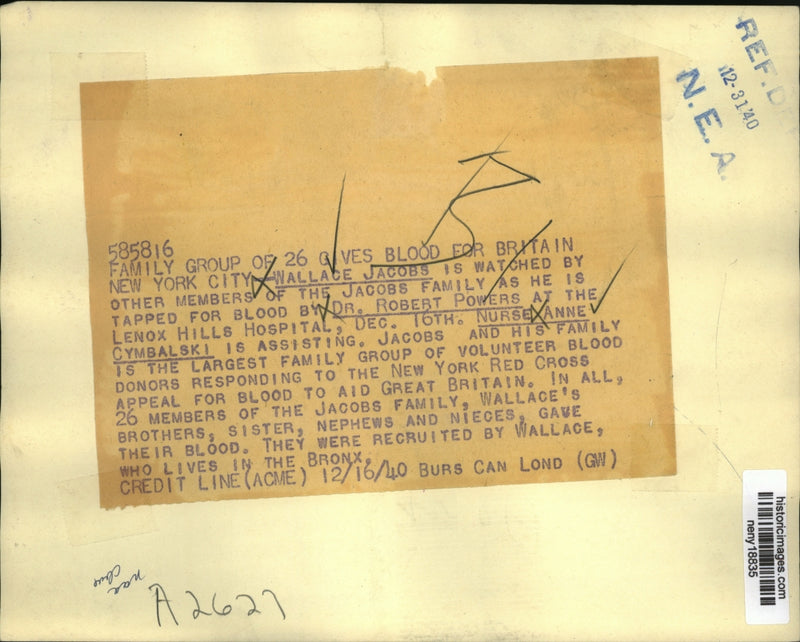 REF. D
12-31'40
N. E. A.
585816
FAMILY GROUP OF 26 GIVES BLOOD FOR BRITAIN
NEW YORK CITY--WALLACE JACOBS IS WATCHED BY
OTHER MEMBERS OF THE JACOBS FAMILY AS HE IS
TAPPED FOR BLOOD BY DR. ROBERT POWERS AT THE
LENOX HILLS HOSPITAL, DEC. 16TH. NURSE ANNE
CYMBALSKI IS ASSISTING. JACOBS AND HIS FAMILY
IS THE LARGEST FAMILY GROUP OF VOLUNTEER BLOOD
DONORS RESPONDING TO THE NEW YORK RED CROSS
APPEAL FOR BLOOD TO AID GREAT BRITAIN. IN ALL,
26 MEMBERS OF THE JACOBS FAMILY, WALLACE'S
BROTHERS, SISTER, NEPHEWS AND NIECES, GAVE
THEIR BLOOD. THEY WERE RECRUITED BY WALLACE,
WHO LIVES IN THE BRONX.
CREDIT LINE (ACME) 12/16/40 BURS CAN LOND (GW)
historicimages.com
neny18835
A2627